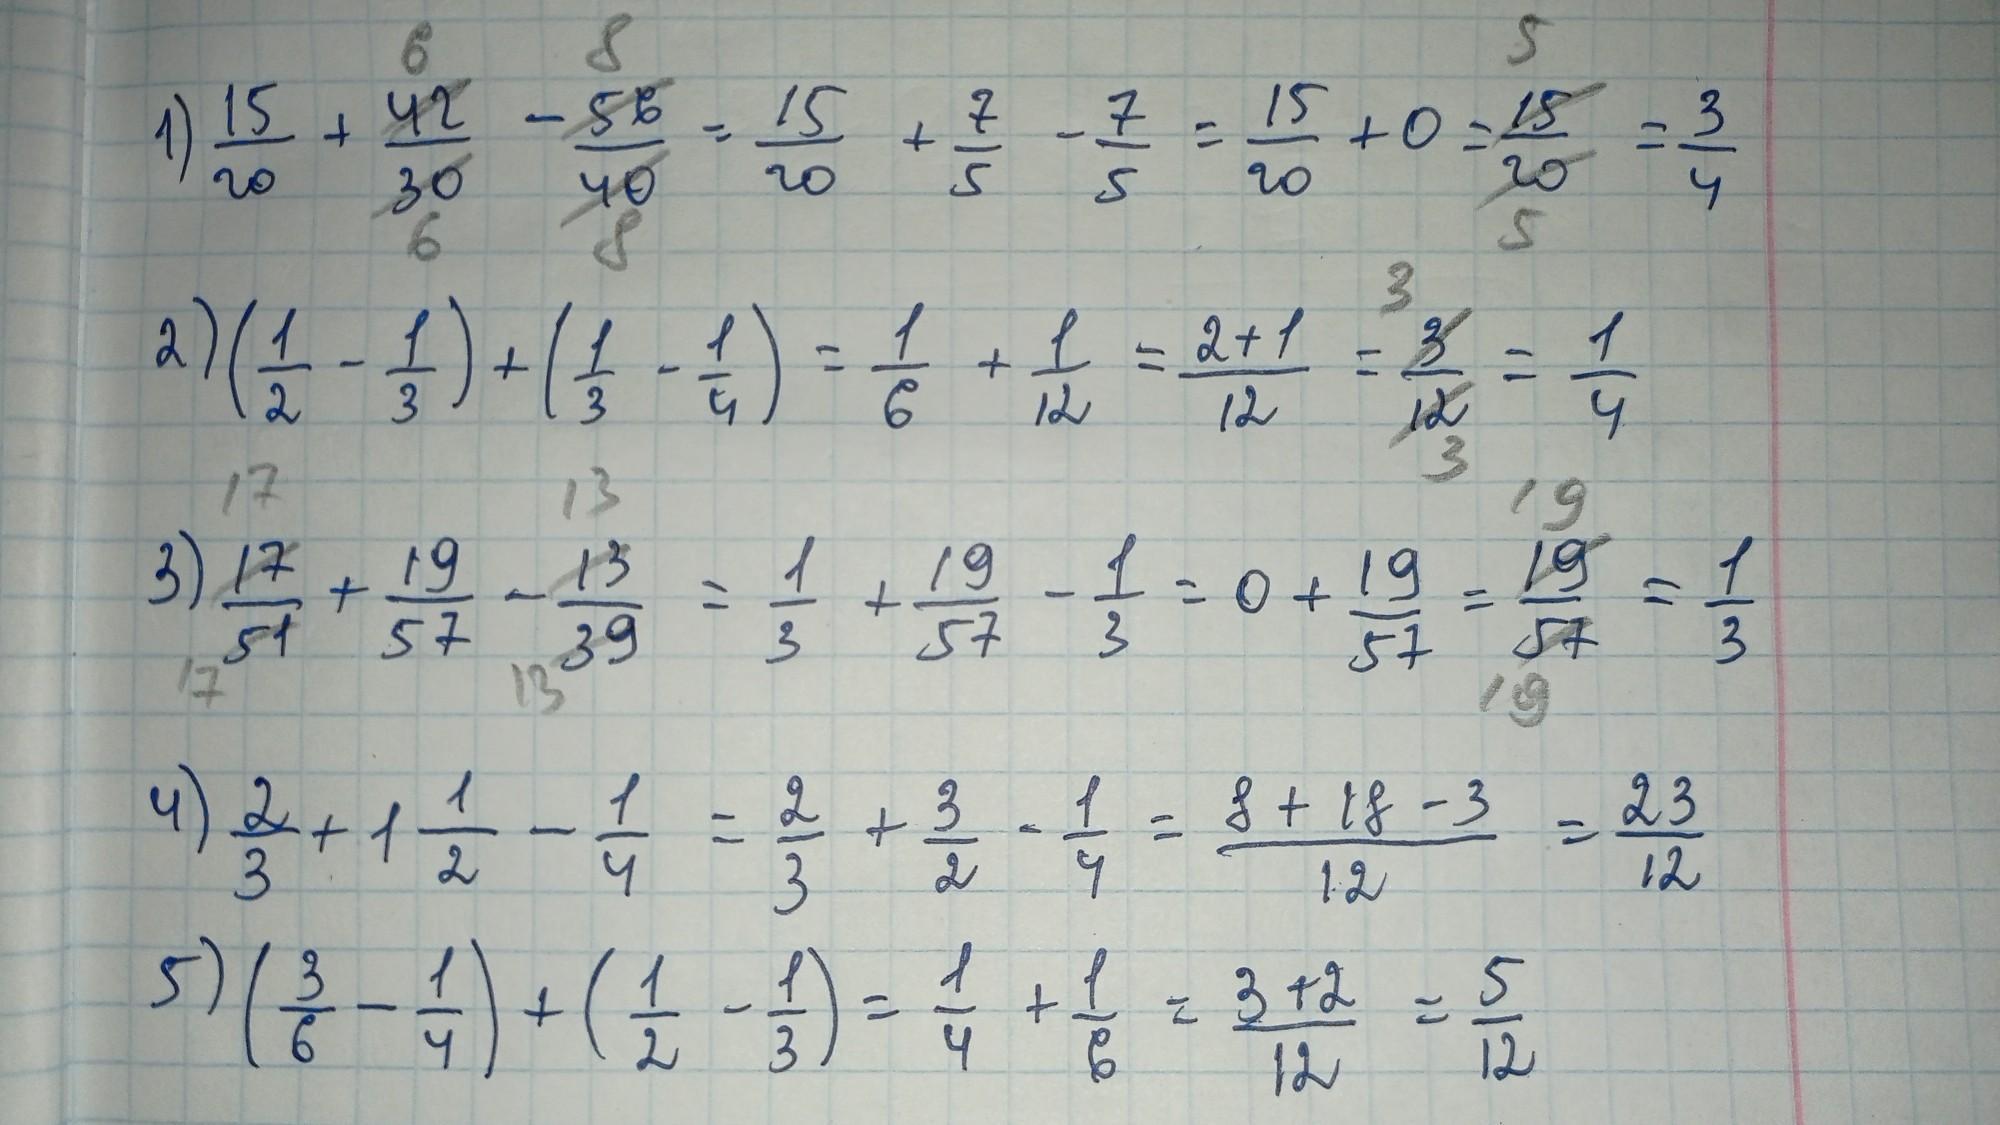 1) 15/20 + 42/30 - 56/40 = 15/20 + 7/5 - 7/5 = 15/20 + 0 = 15/20 = 3/4
2) (1/2 - 1/3) + (1/3 - 1/4) = 1/6 + 1/12 = 2+1/12 = 3/12 = 1/4
3) 17/51 + 19/57 - 13/39 = 1/3 + 19/57 - 1/3 = 0 + 19/57 = 19/57 = 1/3
4) 2/3 + 1 1/2 - 1/4 = 2/3 + 3/2 - 1/4 = 8 + 18 - 3/12 = 23/12
5) (3/6 - 1/4) + (1/2 - 1/3) = 1/4 + 1/6 = 3+2/12 = 5/12